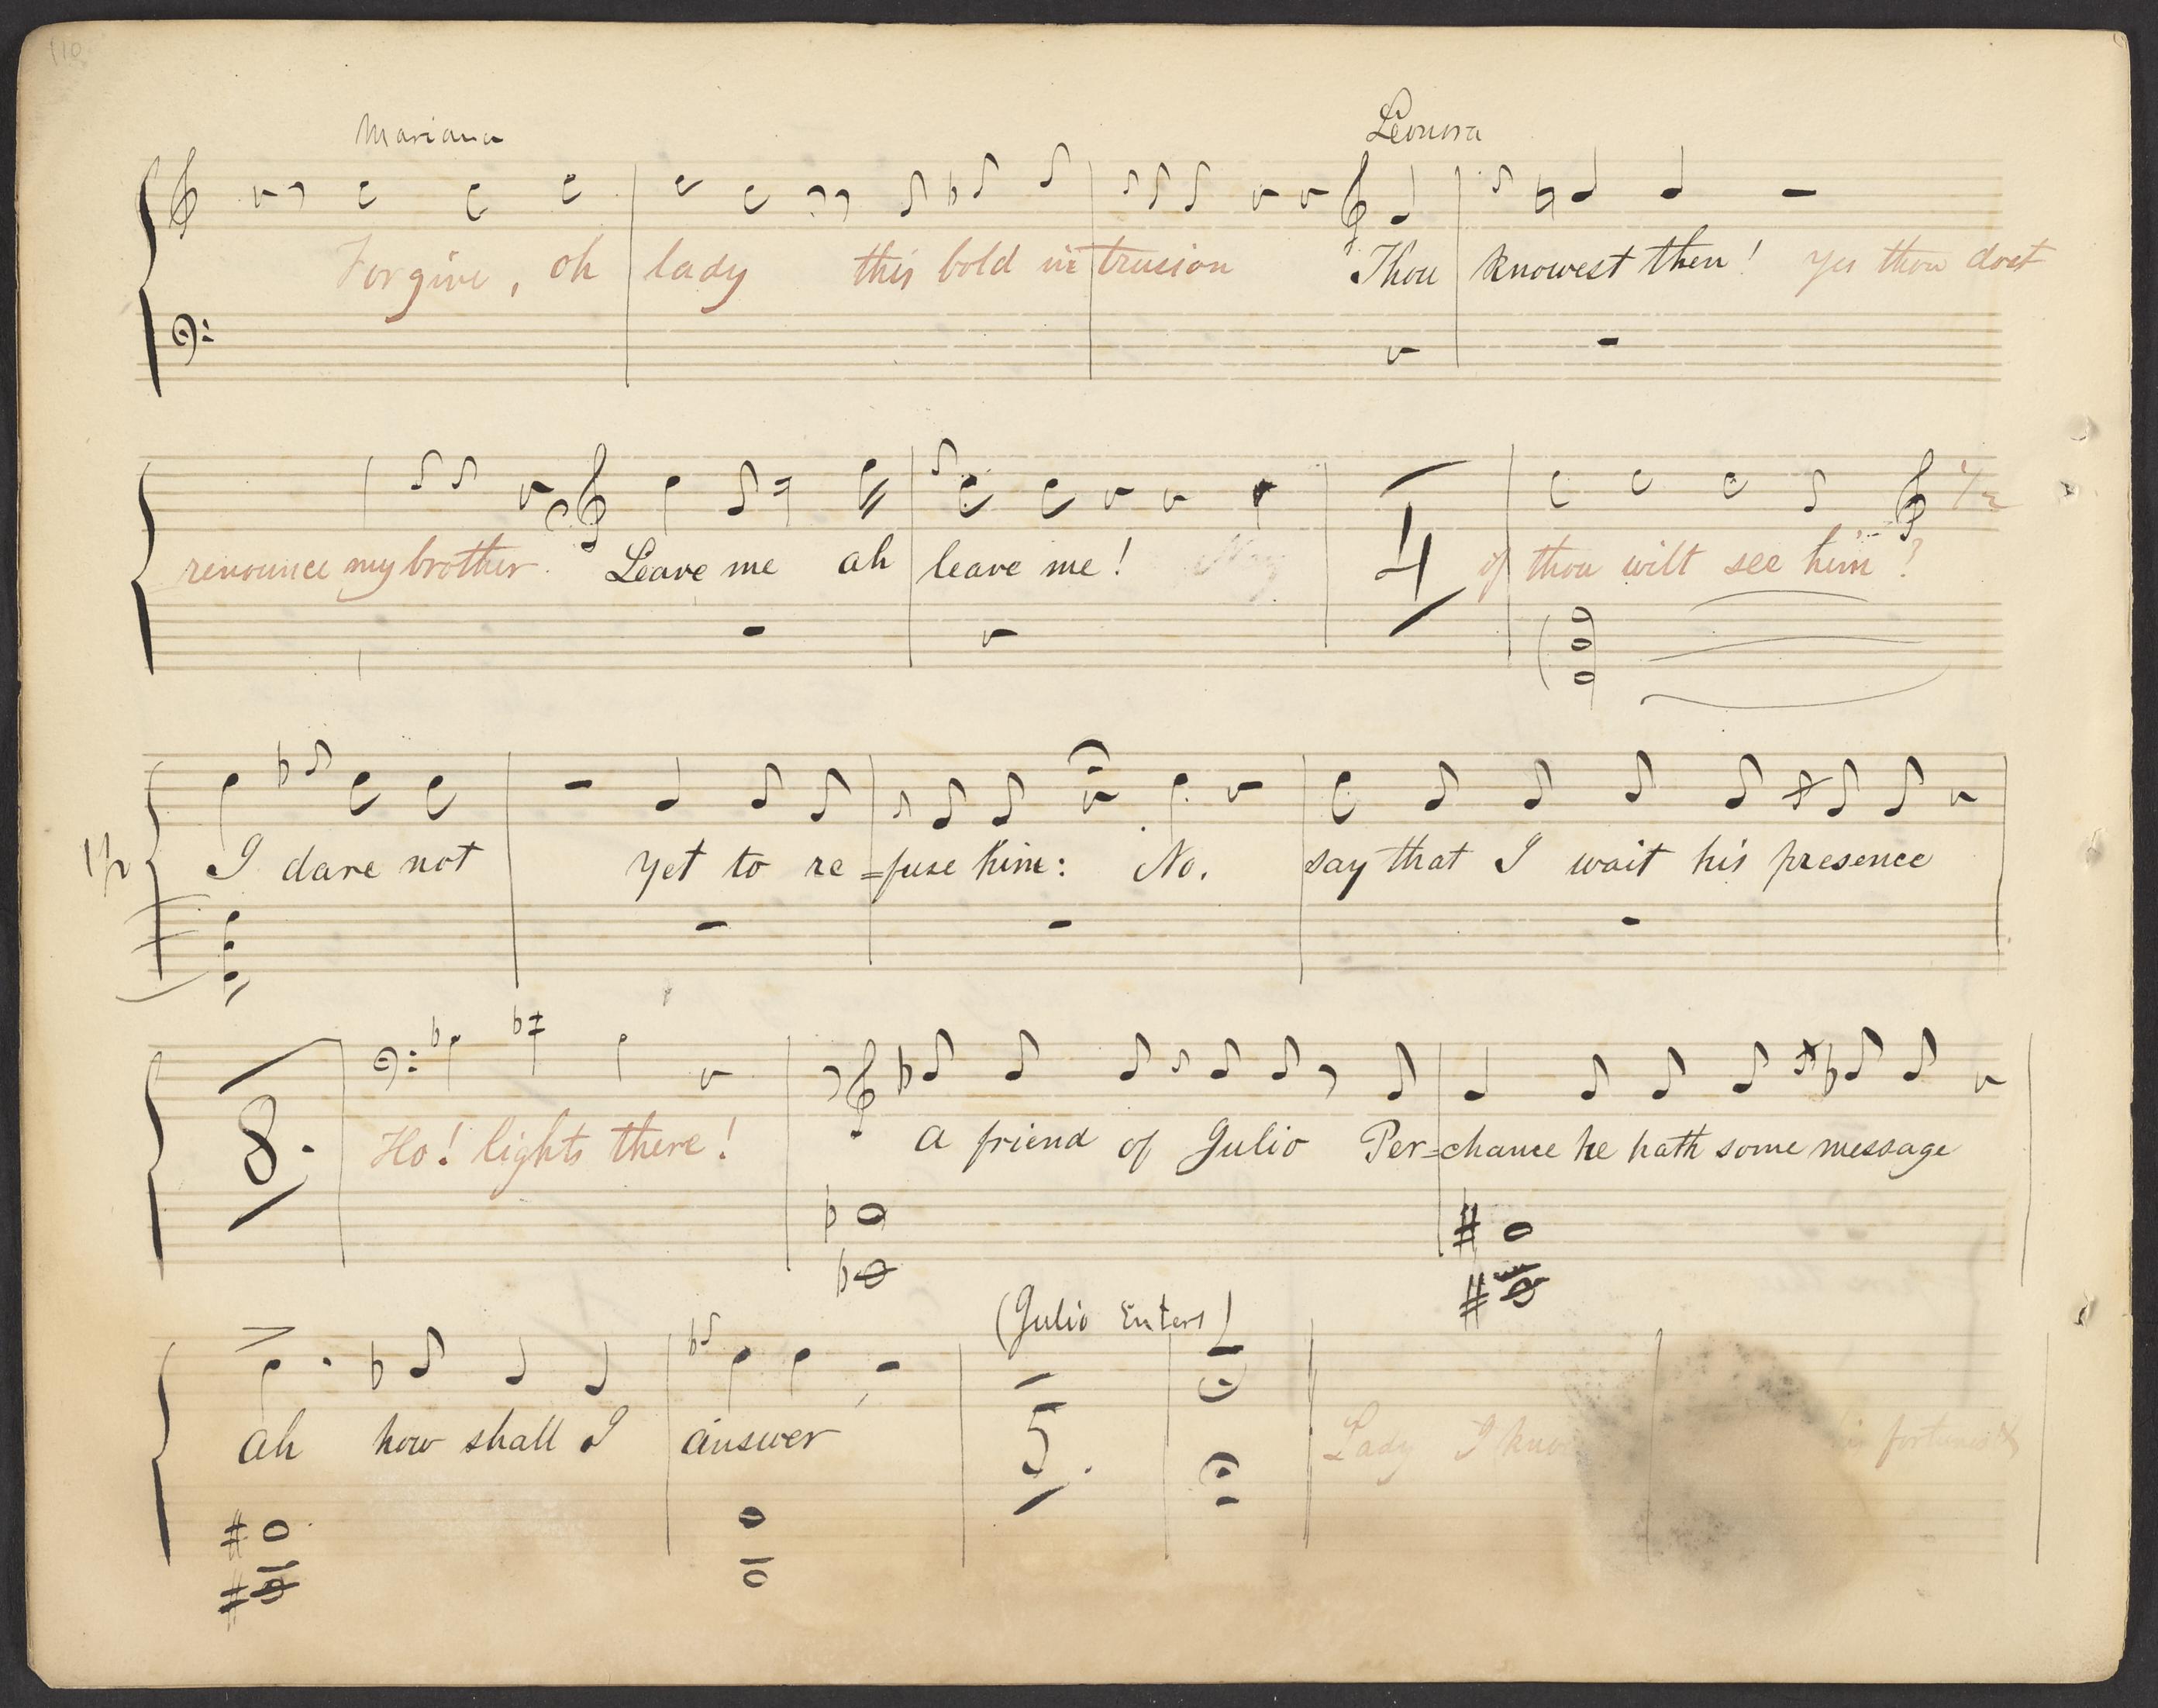 110
Mariana Leonora
Forgive, oh lady this bold intrusion Thou knowest then! Yes thou dost
renounce my brother. Leave me ah leave me! 4 if thou wilt see him?
I dare not yet to re=fuse him: No. say that I wait his presence
8. Ho! lights there! A friend of Julio Per=chance he hath some message
(Julio Enters)
Ah how shall I answer 5. Lady I fortunes